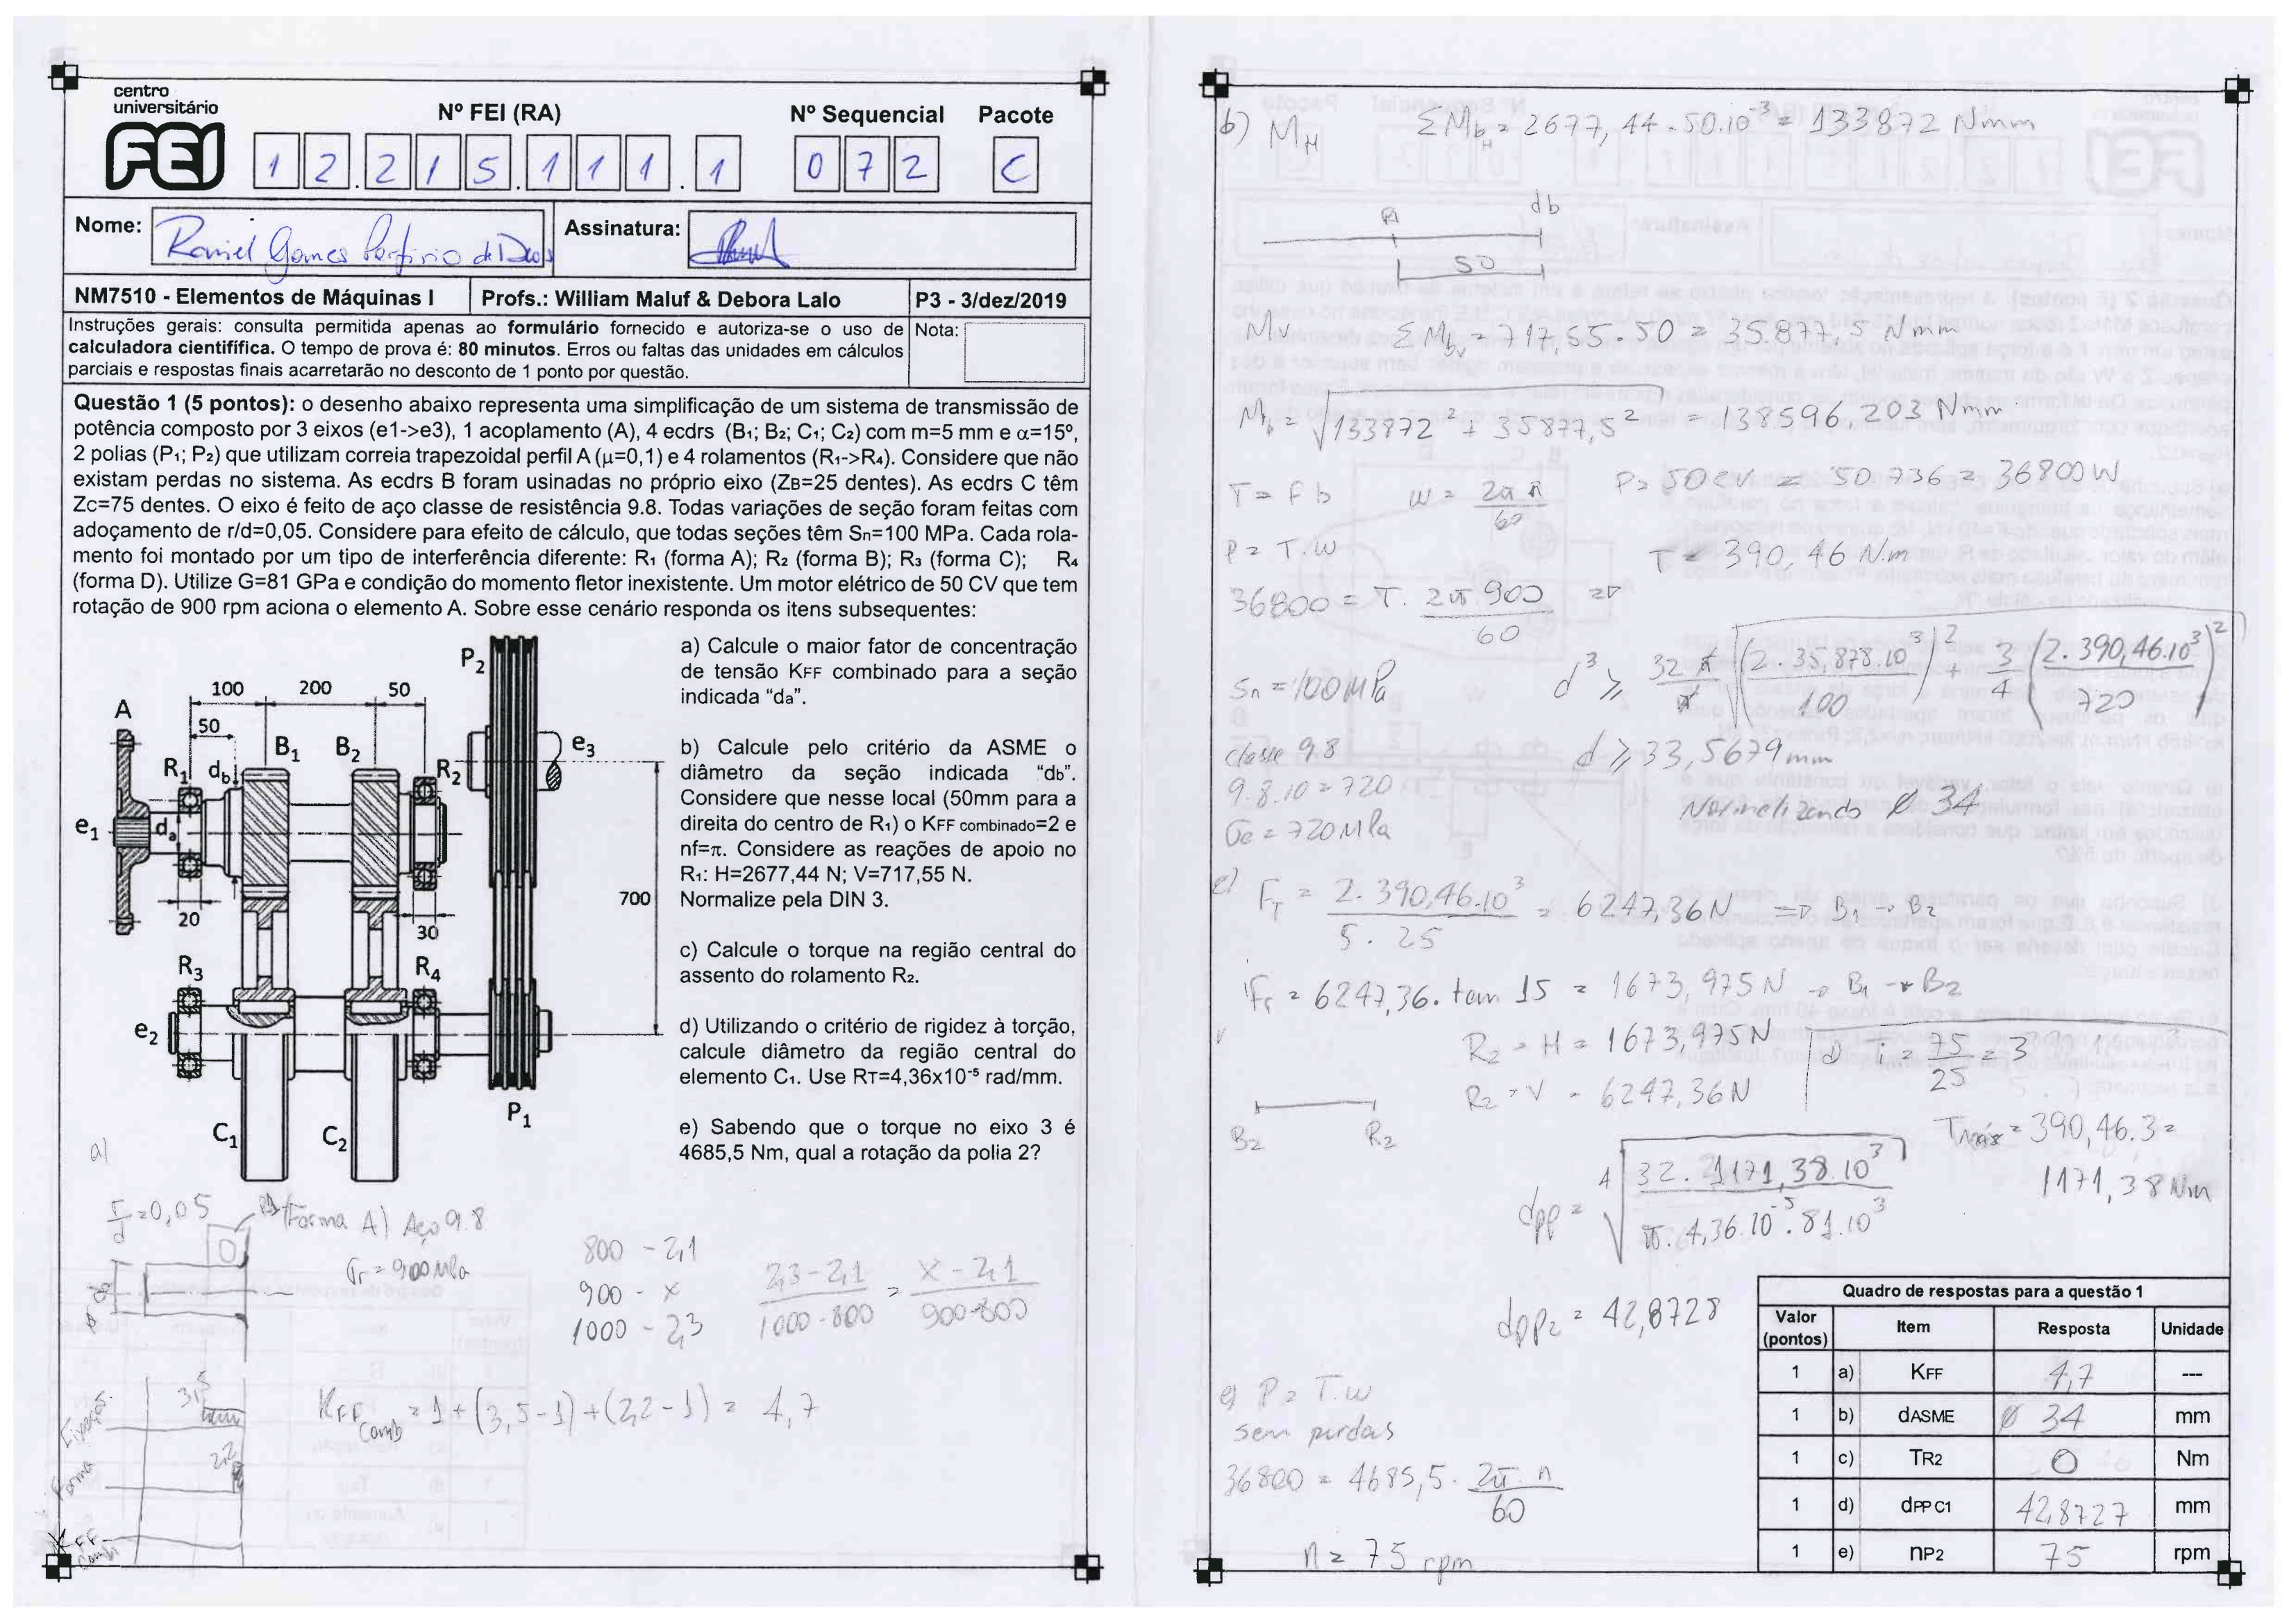 centro
universitário
FEI
Nº FEI (RA)
Nº Sequencial
Pacote
1 2 . 2 1 5 . 1 1 1 . 1
0 7 2
C
Nome:
Assinatura:
NM7510 - Elementos de Máquinas I
Profs.: William Maluf & Debora Lalo
P3 - 3/dez/2019
Instruções gerais: consulta permitida apenas ao formulário fornecido e autoriza-se o uso de
calculadora cientifífica. O tempo de prova é: 80 minutos. Erros ou faltas das unidades em cálculos
parciais e respostas finais acarretarão no desconto de 1 ponto por questão.
Nota:
Questão 1 (5 pontos): o desenho abaixo representa uma simplificação de um sistema de transmissão de
potência composto por 3 eixos (e1->e3), 1 acoplamento (A), 4 ecdrs (B₁; B₂; C₁; C₂) com m=5 mm e α=15º,
2 polias (P₁; P₂) que utilizam correia trapezoidal perfil A (μ=0,1) e 4 rolamentos (R₁->R₄). Considere que não
existam perdas no sistema. As ecdrs B foram usinadas no próprio eixo (ZB=25 dentes). As ecdrs C têm
Zc=75 dentes. O eixo é feito de aço classe de resistência 9.8. Todas variações de seção foram feitas com
adoçamento de r/d=0,05. Considere para efeito de cálculo, que todas seções têm Sn=100 MPa. Cada rola-
mento foi montado por um tipo de interferência diferente: R₁ (forma A); R₂ (forma B); R₃ (forma C); R₄
(forma D). Utilize G=81 GPa e condição do momento fletor inexistente. Um motor elétrico de 50 CV que tem
rotação de 900 rpm aciona o elemento A. Sobre esse cenário responda os itens subsequentes:
a) Calcule o maior fator de concentração
de tensão KFF combinado para a seção
indicada “da”.
b) Calcule pelo critério da ASME o
diâmetro da seção indicada “db”.
Considere que nesse local (50mm para a
direita do centro de R₁) o KFF combinado=2 e
nf=π. Considere as reações de apoio no
R₁: H=2677,44 N; V=717,55 N.
Normalize pela DIN 3.
c) Calcule o torque na região central do
assento do rolamento R₂.
d) Utilizando o critério de rigidez à torção,
calcule diâmetro da região central do
elemento C₁. Use RT=4,36x10⁻⁵ rad/mm.
e) Sabendo que o torque no eixo 3 é
4685,5 Nm, qual a rotação da polia 2?
P₂
100 200 50
A
50
B₁ B₂
R₁ db R₂
e₃
e₁ da
700
20
30
R₃ R₄
e₂
P₁
C₁ C₂
a)
r/d = 0,05
(Forma A) Aço 9.8
σr = 900 MPa
800 - 2,1
900 - x
1000 - 2,3
(2,3-2,1)/(1000-800) = (x-2,1)/(900-800)
3,5
2,2
Forma
KFF Comb = 1 + (3,5-1) + (2,2-1) = 4,7
b) MH ΣMbH = 2677,44 . 50.10⁻³ = 133872 Nmm
db
50
Mv ΣMbv = 717,55 . 50 = 35.877,5 Nmm
Mb = √133872² + 35877,5² = 138596,203 Nmm
T = F b w = 2π n/60 P = 50 CV = 50.736 = 36800 W
P = T.w
T = 390,46 N.m
36800 = T. 2π.900/60 ⇒
Sn = 100 MPa
d³ ≥ 32 π/π √(2.35,878.10³/100)² + 3/4 (2.390,46.10³/720)²
Classe 9.8
d ≥ 33,5679 mm
9.8.10 = 720
Normalizando ø 34
σe = 720 MPa
FT = 2.390,46.10³/5.25 = 6247,36 N ⇒ B₁ → B₂
Fr = 6247,36. tan 15 = 1673,975 N → B₁ → B₂
R₂ = H = 1673,975 N
R₂ = V = 6247,36 N
d) i = 75/25 = 3
B₂ R₂
Tmáx = 390,46.3 =
1171,38 Nm
dpp = ⁴√32.1171,38.10³/π.4,36.10⁻⁵.81.10³
dpp = 42,8728
e) P = T.w
sem perdas
36800 = 4685,5 . 2π.n/60
n = 75 rpm
Quadro de respostas para a questão 1
Valor (pontos) Item Resposta Unidade
1 a) KFF 4,7 ---
1 b) dASME ø 34 mm
1 c) TR2 0 Nm
1 d) dPP C1 42,8727 mm
1 e) nP2 75 rpm